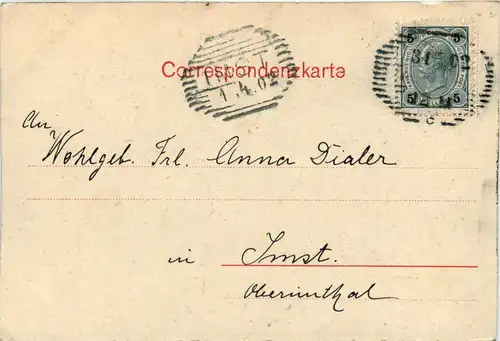 Correspondenzkarte
IMST
1.4.02
5 5
31 02
5 5
An
Wohlgeb. Frl. Anna Dialer
in Imst.
Oberinnthal